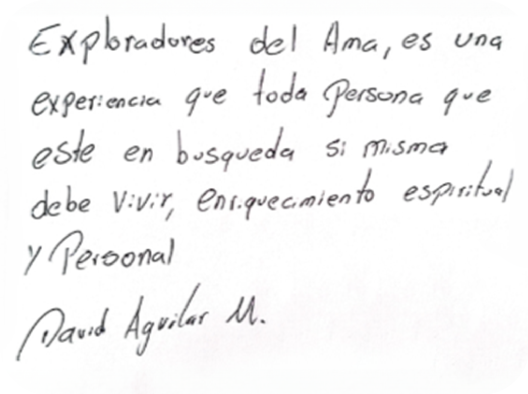 Exploradores del Ama, es una
experiencia que toda Persona que
este en busqueda si misma
debe vivir, enriquecimiento espiritual
y Personal
David Aguilar M.